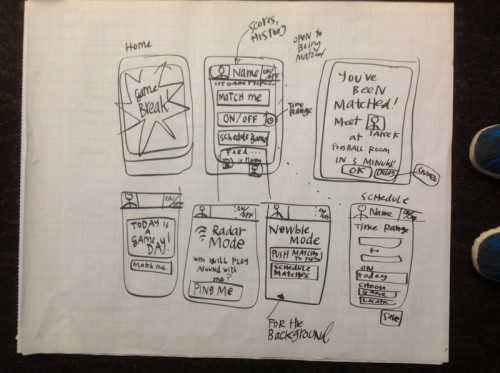 Home
SCORES,
HISTORY
OPEN TO
BEING
MATCHED
Game
Break
Name ON/OFF
MATCH me
ON/OFF
SCHEDULE Game
Time
Range
YOU'VE
BEEN
MATCHED!
Meet
at
FOOSBALL ROOM
IN 3 MINUTES!
OK
SNOOZE
ON/
OFF
TODAY IS
A
GAME
DAY!
Match me
ON/
OFF
Radar
MODE
WHO WILL PLAY
AROUND WITH
me?
PING ME
ON/
OFF
Newbie
MODE
PUSH MATCHES
TO THEM
SCHEDULE
MATCHES
FOR THE
BACKGROUND
SCHEDULE
Name
TIME RANGE
ON
Today
CHOOSE
GAME
SAVE